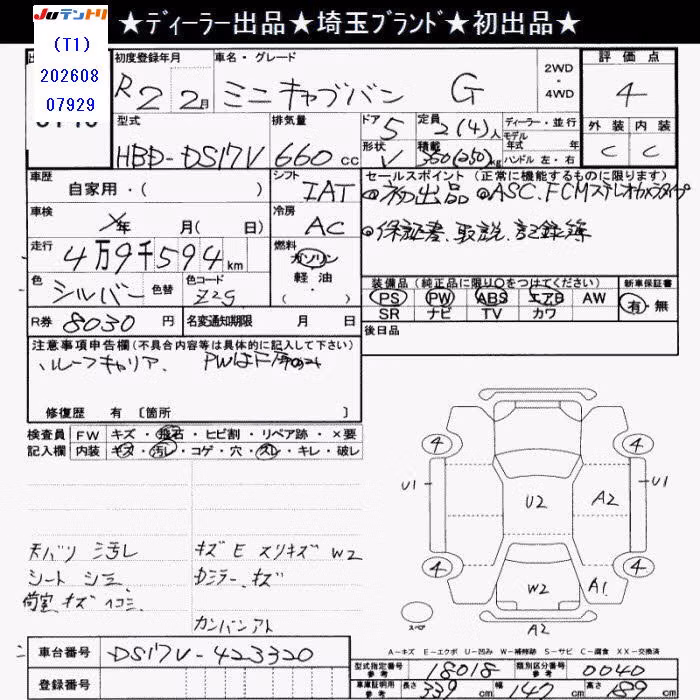 ★ディーラー出品★埼玉ブランド★初出品★
JUテントリ
(T1)
202608
07929
初度登録年月
R2 2月
車名・グレード
ミニキャブバン G
2WD
・
4WD
評価点
4
外装 内装
C C
型式
HBD-DS17V
排気量
660 cc
ドア 5
形状 V
定員 2(4)人
積載 350(250)kg
ディーラー・並行
モデル
年式 年
ハンドル 左・右
車歴
自家用・( )
シフト
IAT
セールスポイント (正常に機能するものに限ります)
●初出品 ●ASC.FCMステレオカメラタイプ
●保証書.取説.記録簿
車検
年 月( 日)
冷房
AC
走行
4万9千594 km
燃料
ガソリン
軽油
・( )
色
シルバー
色替
色コード
Z2G
装備品 (純正品に限り○をつけてください)
PS PW ABS エアB AW
SR ナビ TV カワ
新車保証書
有・無
R券 8030 円
名変通知期限 月 日
後日品
注意事項申告欄(不具合内容等は具体的に記入して下さい)
ルーフキャリア. PWはF席のみ
修復歴 有〔箇所 〕
検査員
記入欄
FW キズ・飛石・ヒビ割・リペア跡・×要
内装 キズ・汚レ・コゲ・穴・スレ・キレ・破レ
天バリ シ汚レ
シート シミ
荷室 キズ ヘコミ
キズ E スリキズ W2
Dミラー.キズ
カンバンアト
4 4
U1 U2 A2 U1
4 4
W2 A1
A2
スペア
A-キズ E-エクボ U-凹み W-補修跡 S-サビ C-腐食 XX-交換済
車台番号 DS17V-423320
登録番号
型式指定番号
参考
18018
類別区分番号
参考
0040
車庫証明用
参考
長さ 339 cm 幅 147 cm 高さ 189 cm